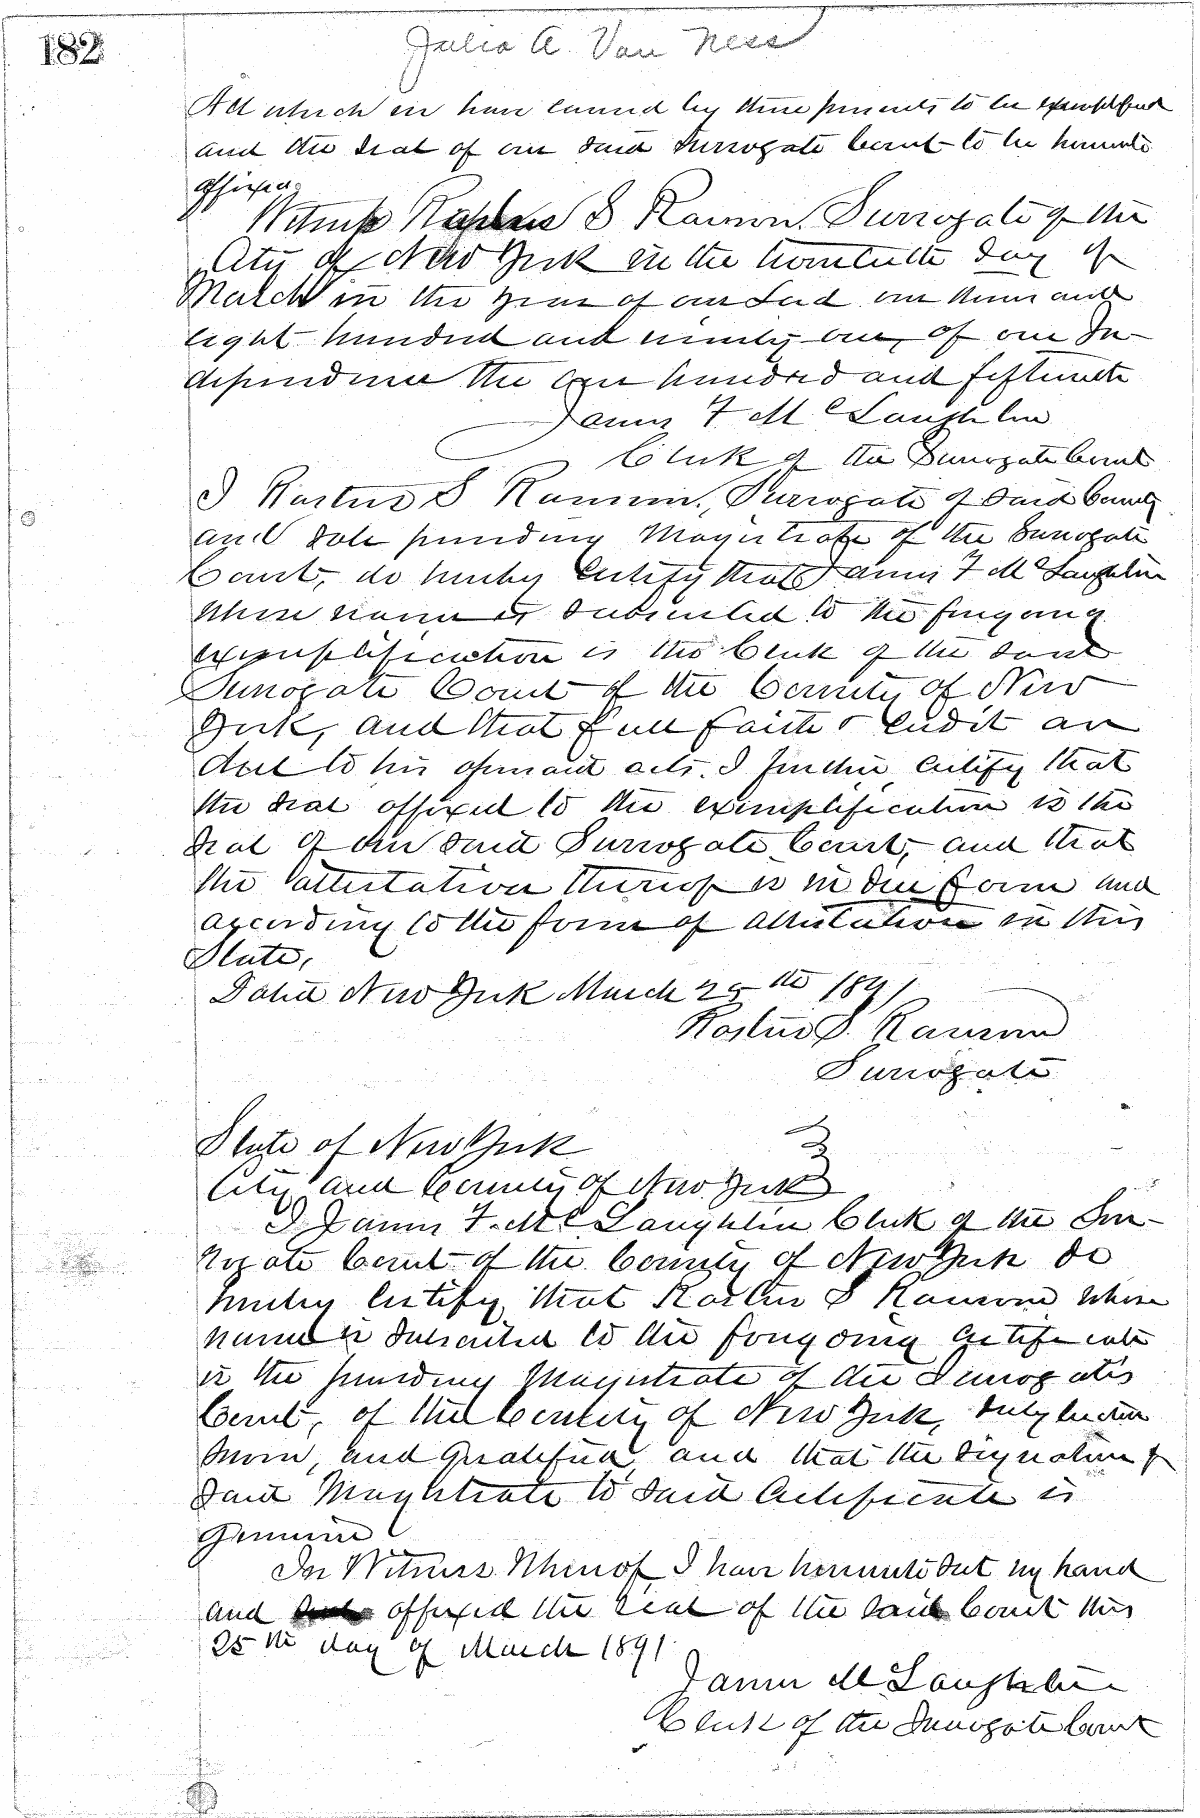 182
Julia A. Van Ness
All which we have caused by these presents to be exemplified
and the seal of our said Surrogate Court to be hereunto
affixed.
Witness Rastus S Ransom. Surrogate of the
City of New York in the twentieth day of
March in the year of our Lord one thousand
eight hundred and ninety one, of our In-
dependence the one hundred and fifteenth
James F McLaughlin
Clerk of the Surrogate Court
I Rastus S Ransom, Surrogate of said County
and sole presiding Magistrate of the Surrogate
Court, do hereby certify that James F McLaughlin
whose name is subscribed to the foregoing
exemplification is the Clerk of the said
Surrogate Court of the County of New
York, and that full faith & credit are
due to his official acts. I further certify that
the seal affixed to the exemplification is the
seal of our said Surrogate Court, and that
the attestation thereof is in due form and
according to the form of attestation in this
State,
Dated New York March 25th 1891
Rastus S. Ransom
Surrogate
State of New York
City and County of New York
I James F. McLaughlin Clerk of the Sur-
rogate Court of the County of New York do
hereby certify that Rastus S Ransom whose
name is subscribed to the foregoing certificate
is the presiding Magistrate of the Surrogate's
Court, of the County of New York, duly
sworn, and qualified, and that the signature of
said Magistrate to said Certificate is
genuine
In Witness Whereof, I have hereunto set my hand
and affixed the seal of the said Court this
25th day of March 1891
James McLaughlin
Clerk of the Surrogate Court